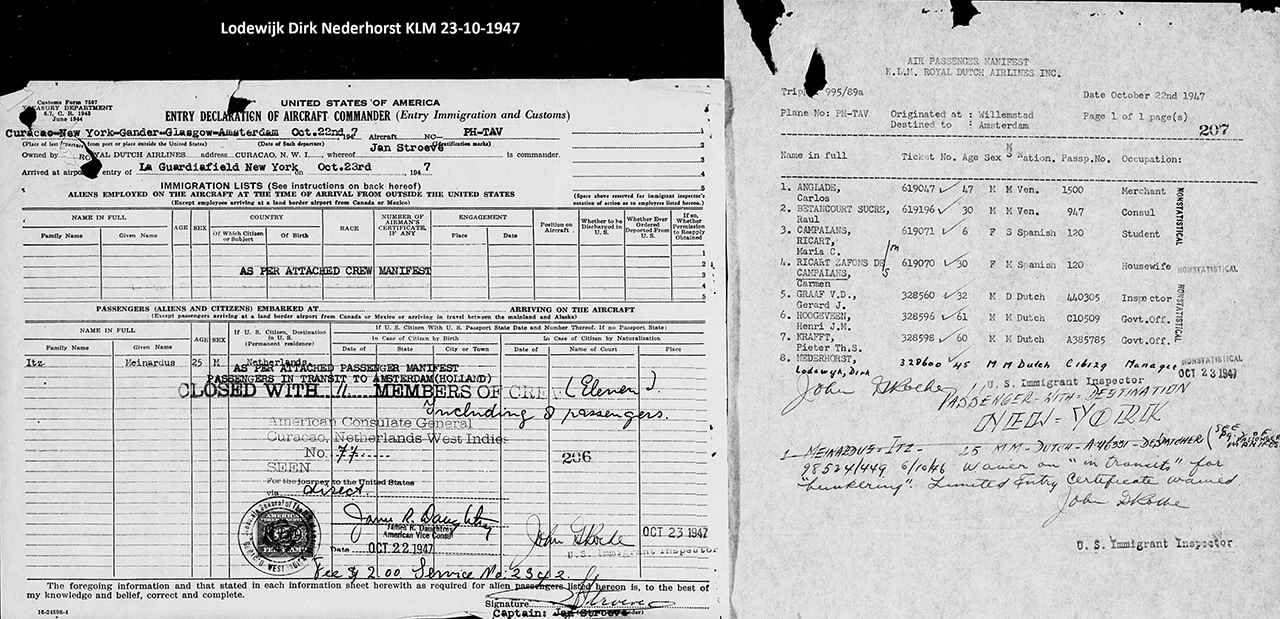 Lodewijk Dirk Nederhorst KLM 23-10-1947
Customs Form 7507
TREASURY DEPARTMENT
6.7, C. R. 1943
June 1944
UNITED STATES OF AMERICA
ENTRY DECLARATION OF AIRCRAFT COMMANDER (Entry Immigration and Customs)
Curacao-New York-Gander-Glasgow-Amsterdam Oct.22nd 194 7 Aircraft NO— PH-TAV
(Place of last departure from port or place outside the United States) (Date of Such departure) (Identification marks)
Owned by ROYAL DUTCH AIRLINES address CURACAO, N. W. I. , whereof Jan Stroeve is commander.
Arrived at airport of entry of La Guardiafield New York on Oct.23rd , 194 7
IMMIGRATION LISTS (See instructions on back hereof)
ALIENS EMPLOYED ON THE AIRCRAFT AT THE TIME OF ARRIVAL FROM OUTSIDE THE UNITED STATES
(Except employees arriving at a land border airport from Canada or Mexico)
(Space above reserved for immigrant inspector's notation of action as to employees listed hereon.)
NAME IN FULL AGE SEX COUNTRY RACE NUMBER OF AIRMAN'S CERTIFICATE, IF ANY ENGAGEMENT Position on Aircraft Whether to be Discharged in U. S. Whether Ever Ordered Deported From U. S. If so, Whether Permission to Reapply Obtained
Family Name Given Name Of Which Citizen or Subject Of Birth Place Date
AS PER ATTACHED CREW MANIFEST
PASSENGERS (ALIENS AND CITIZENS) EMBARKED AT ARRIVING ON THE AIRCRAFT
(Except passengers arriving at a land border airport from Canada or Mexico or arriving in travel between the mainland and Alaska)
NAME IN FULL AGE SEX If U. S. Citizen, Destination in U. S. (Permanent residence) If U. S. Citizen With U. S. Passport State Date and Number Thereof. If no Passport State:
In Case of Citizen by Birth In Case of Citizen by Naturalization
Family Name Given Name Date of State City or Town Date of Name of Court Place
Itz Meinardus 25 M Netherlands
AS PER ATTACHED PASSENGER MANIFEST
PASSENGERS IN TRANSIT TO AMSTERDAM(HOLLAND)
CLOSED WITH 11 MEMBERS OF CREW (Eleven).
Including 8 passengers.
American Consulate General
Curacao, Netherlands West Indies
No. 77
206
SEEN
For the journey to the United States
via Direct.
James R. Daughtry
James R. Daughtrey
American Vice Consul
Date OCT 22 1947
John G Roche
OCT 23 1947
U. S. Immigrant Inspector
Fee $ 2.00 Service No. 2342
The foregoing information and that stated in each information sheet herewith as required for alien passengers listed hereon is, to the best of
my knowledge and belief, correct and complete.
Signature
Captain: Jan Stroeve
16-24598-4
AIR PASSENGER MANIFEST
K.L.M. ROYAL DUTCH AIRLINES INC.
Trip 995/89a Date October 22nd 1947
Plane No: PH-TAV Originated at : Willemstad Page 1 of 1 page(s)
Destined to : Amsterdam 207
Name in full Ticket No. Age Sex M S Nation. Passp.No. Occupation:
1. ANGLADE, 619047 47 M M Ven. 1500 Merchant
Carlos
2. BETANCOURT SUCRE, 619196 30 M M Ven. 947 Consul
Raul
3. CAMPAIANS, 619071 6 F S Spanish 120 Student
RICART,
Maria C.
4. RICART ZAFONS DE 619070 30 F M Spanish 120 Housewife
CAMPAIANS,
Carmen
5. GRAAF V.D., 328560 32 M D Dutch 440305 Inspector
Gerard J.
6. HOOGEVEEN, 328596 61 M M Dutch C10509 Govt.Off.
Henri J.M.
7. KRAFFT, 328598 60 M M Dutch A385785 Govt.Off.
Pieter Th.S.
8. NEDERHORST, 328600 45 M M Dutch Manager
Lodewyk, Dirk
NONSTATISTICAL
NONSTATISTICAL
NONSTATISTICAL
NONSTATISTICAL
OCT 23 1947
John G Roche
U. S. Immigrant Inspector
PASSENGER-WITH-DESTINATION
NEW-YORK
1 MEINARDUS-ITZ- 25 M M-DUTCH- DESPATCHER
98524/449 6/10/46 Waiver on "in transits" for
"bunkering". Limited Entry Certificate waived
John G Roche
U. S. Immigrant Inspector